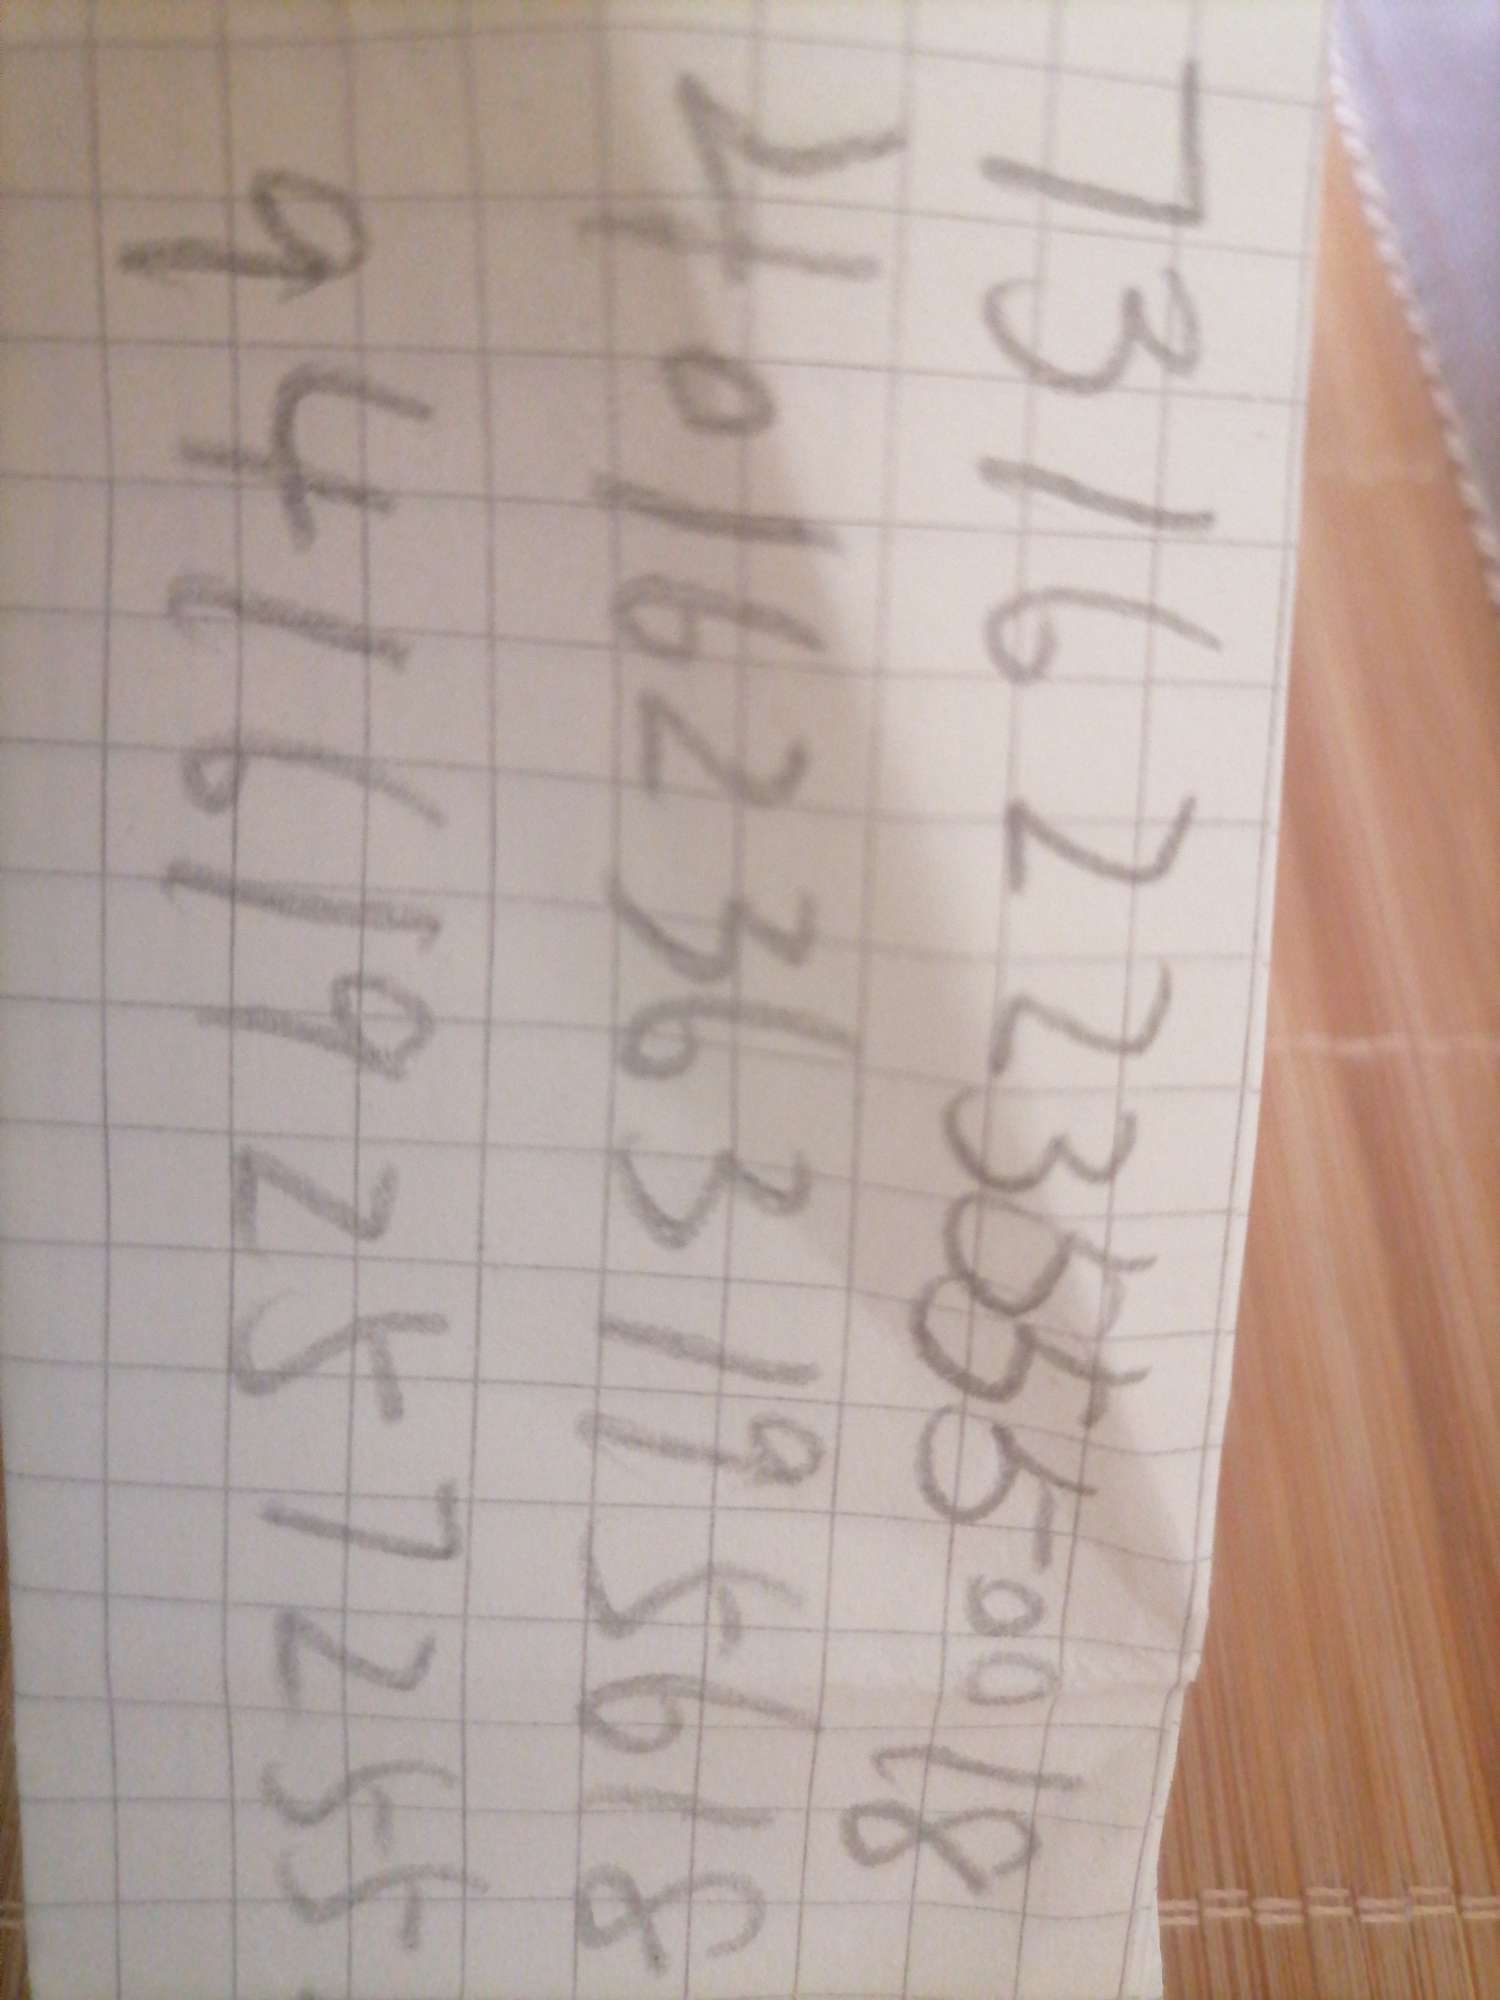 73162235550018
40162363195618
941619257255